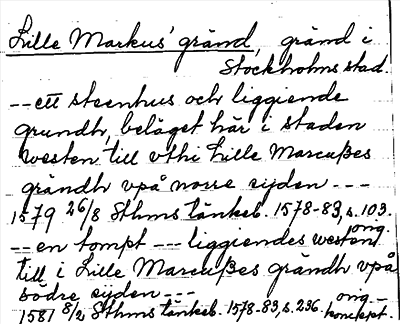 Lille Markus' gränd, gränd i
Stockholms stad.
-- ett steenhus och liggiende
grundh, beläget här i staden
westen till vthi Lille Marcußes
grändh vpå norre sijden ---
1579 26/8 Sthms tänkeb. 1578-83, s. 103.
orig.
-- en tompt --- liggiendes westen
till i Lille Marcußes grändh vpå
södre sijden ---
1581 8/2 Sthms tänkeb. 1578-83, s. 236. orig.-
koncept.